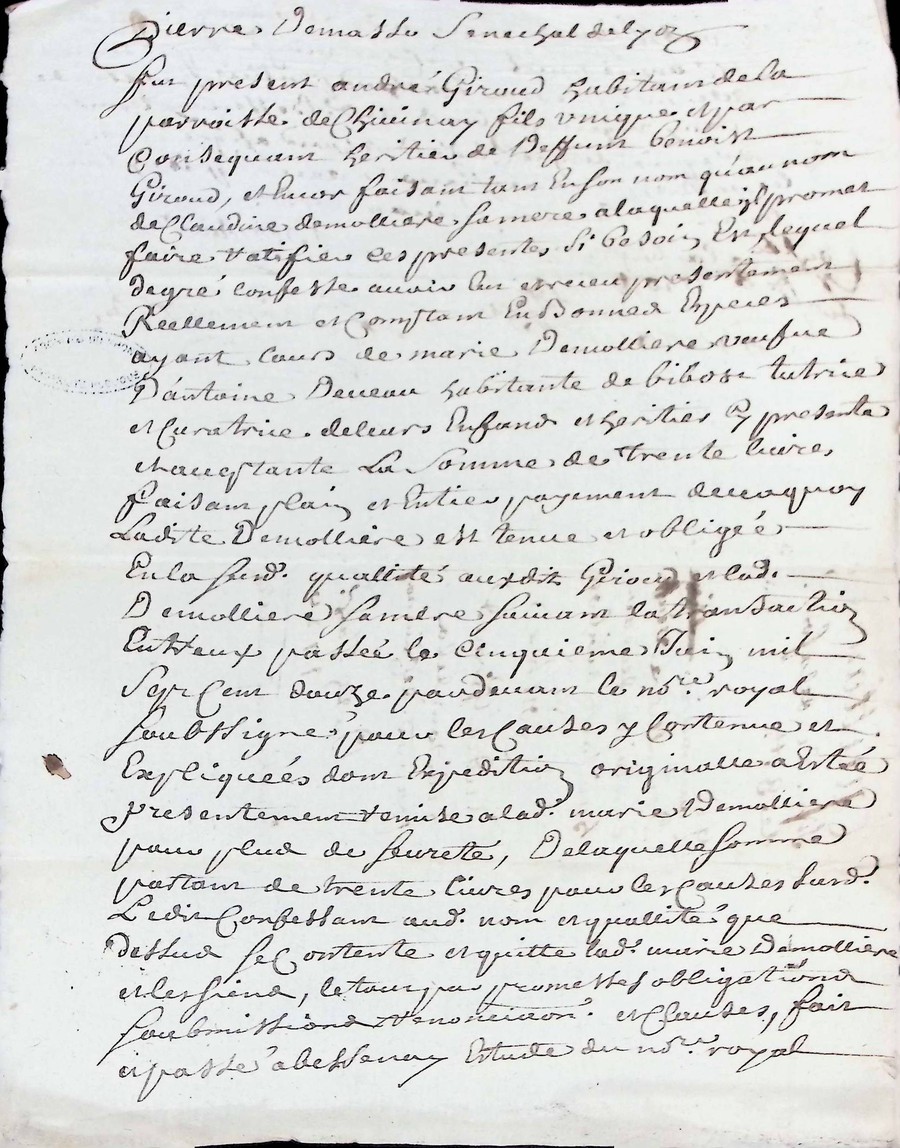 Pierre Demasso Senechal de lyon
fut present andré Giroud habitant de la
parroisse de Chivinay fils unique et par
Consequant heritier de Deffunt benoist
Giroud, et Encor faisant tant En son nom qu'au nom
de Claudine demolliere sa mere a laquelle il promet
faire ratifier ces presentes si besoin Est, lequel
de gré confesse avoir Eu et receu presentement
Reellement et Comptant En bonnes Especes
ayant cours de marie Demolliere veufve
D'antoine Deveau habitante de bibost tutrice
et Curatrice de leurs Enfans et heritier Cy presente
et acceptante La Somme de trente livres
faisant plain et Entier payement de ce a quoy
Ladite Demolliere est tenue et obligée
En la surd. quallité audit Giroud et lad.
Demolliere sa mere suivant la transaction
Entr'eux passée le cinquieme Juin mil
Sept Cent douze pardevant le no.re royal
soubssigné pour les Causes y Contenue et
Expliqueés dont Expedition originalle a Esté
presentement remise a lad. marie Demolliere
pour plus de seureté, De laquelle somme
partant de trente livres pour les Causes surd.
Ledit Confessant aud. nom et quallité que
dessus se Contente et quitte lad. marie Demolliere
et les siens, le tout par promesses obligations
soubmissions renonciaôn. et Clauses, fait
et passé a bessenay Estude du no.re royal